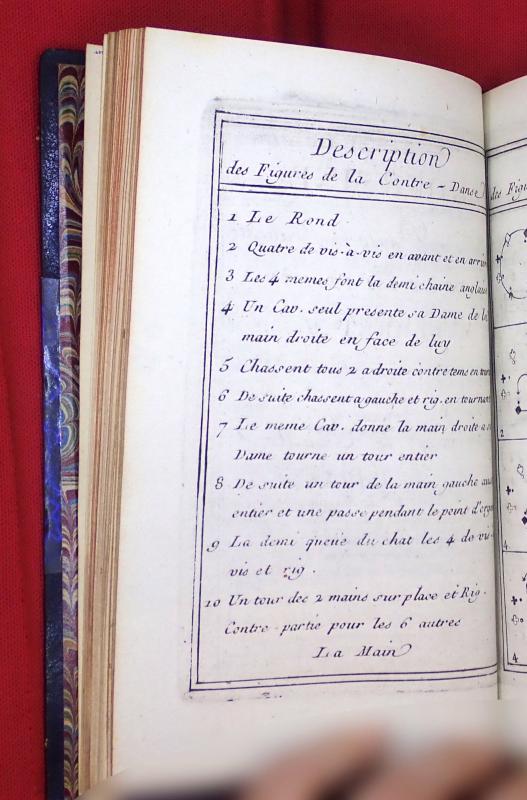 Description
des Figures de la Contre - Danse
1 Le Rond
2 Quatre de vis-à-vis en avant et en arrie
3 Les 4 memes font la demi chaine anglais
4 Un Cav. seul presente sa Dame de la
main droite en face de luy
5 Chassent tous 2 a droite contretems en tourn
6 De suite chassent a gauche et rig. en tournant
7 Le meme Cav. donne la main droite a
Dame tourne un tour entier
8 De suite un tour de la main gauche aus
entier et une passe pendant le point d'orgu
9 La demi queüe du chat les 4 de vis-
vis et rig.
10 Un tour des 2 mains sur place et Rig.
Contre-partie pour les 6 autres
La Main
des Figu
2
4
4